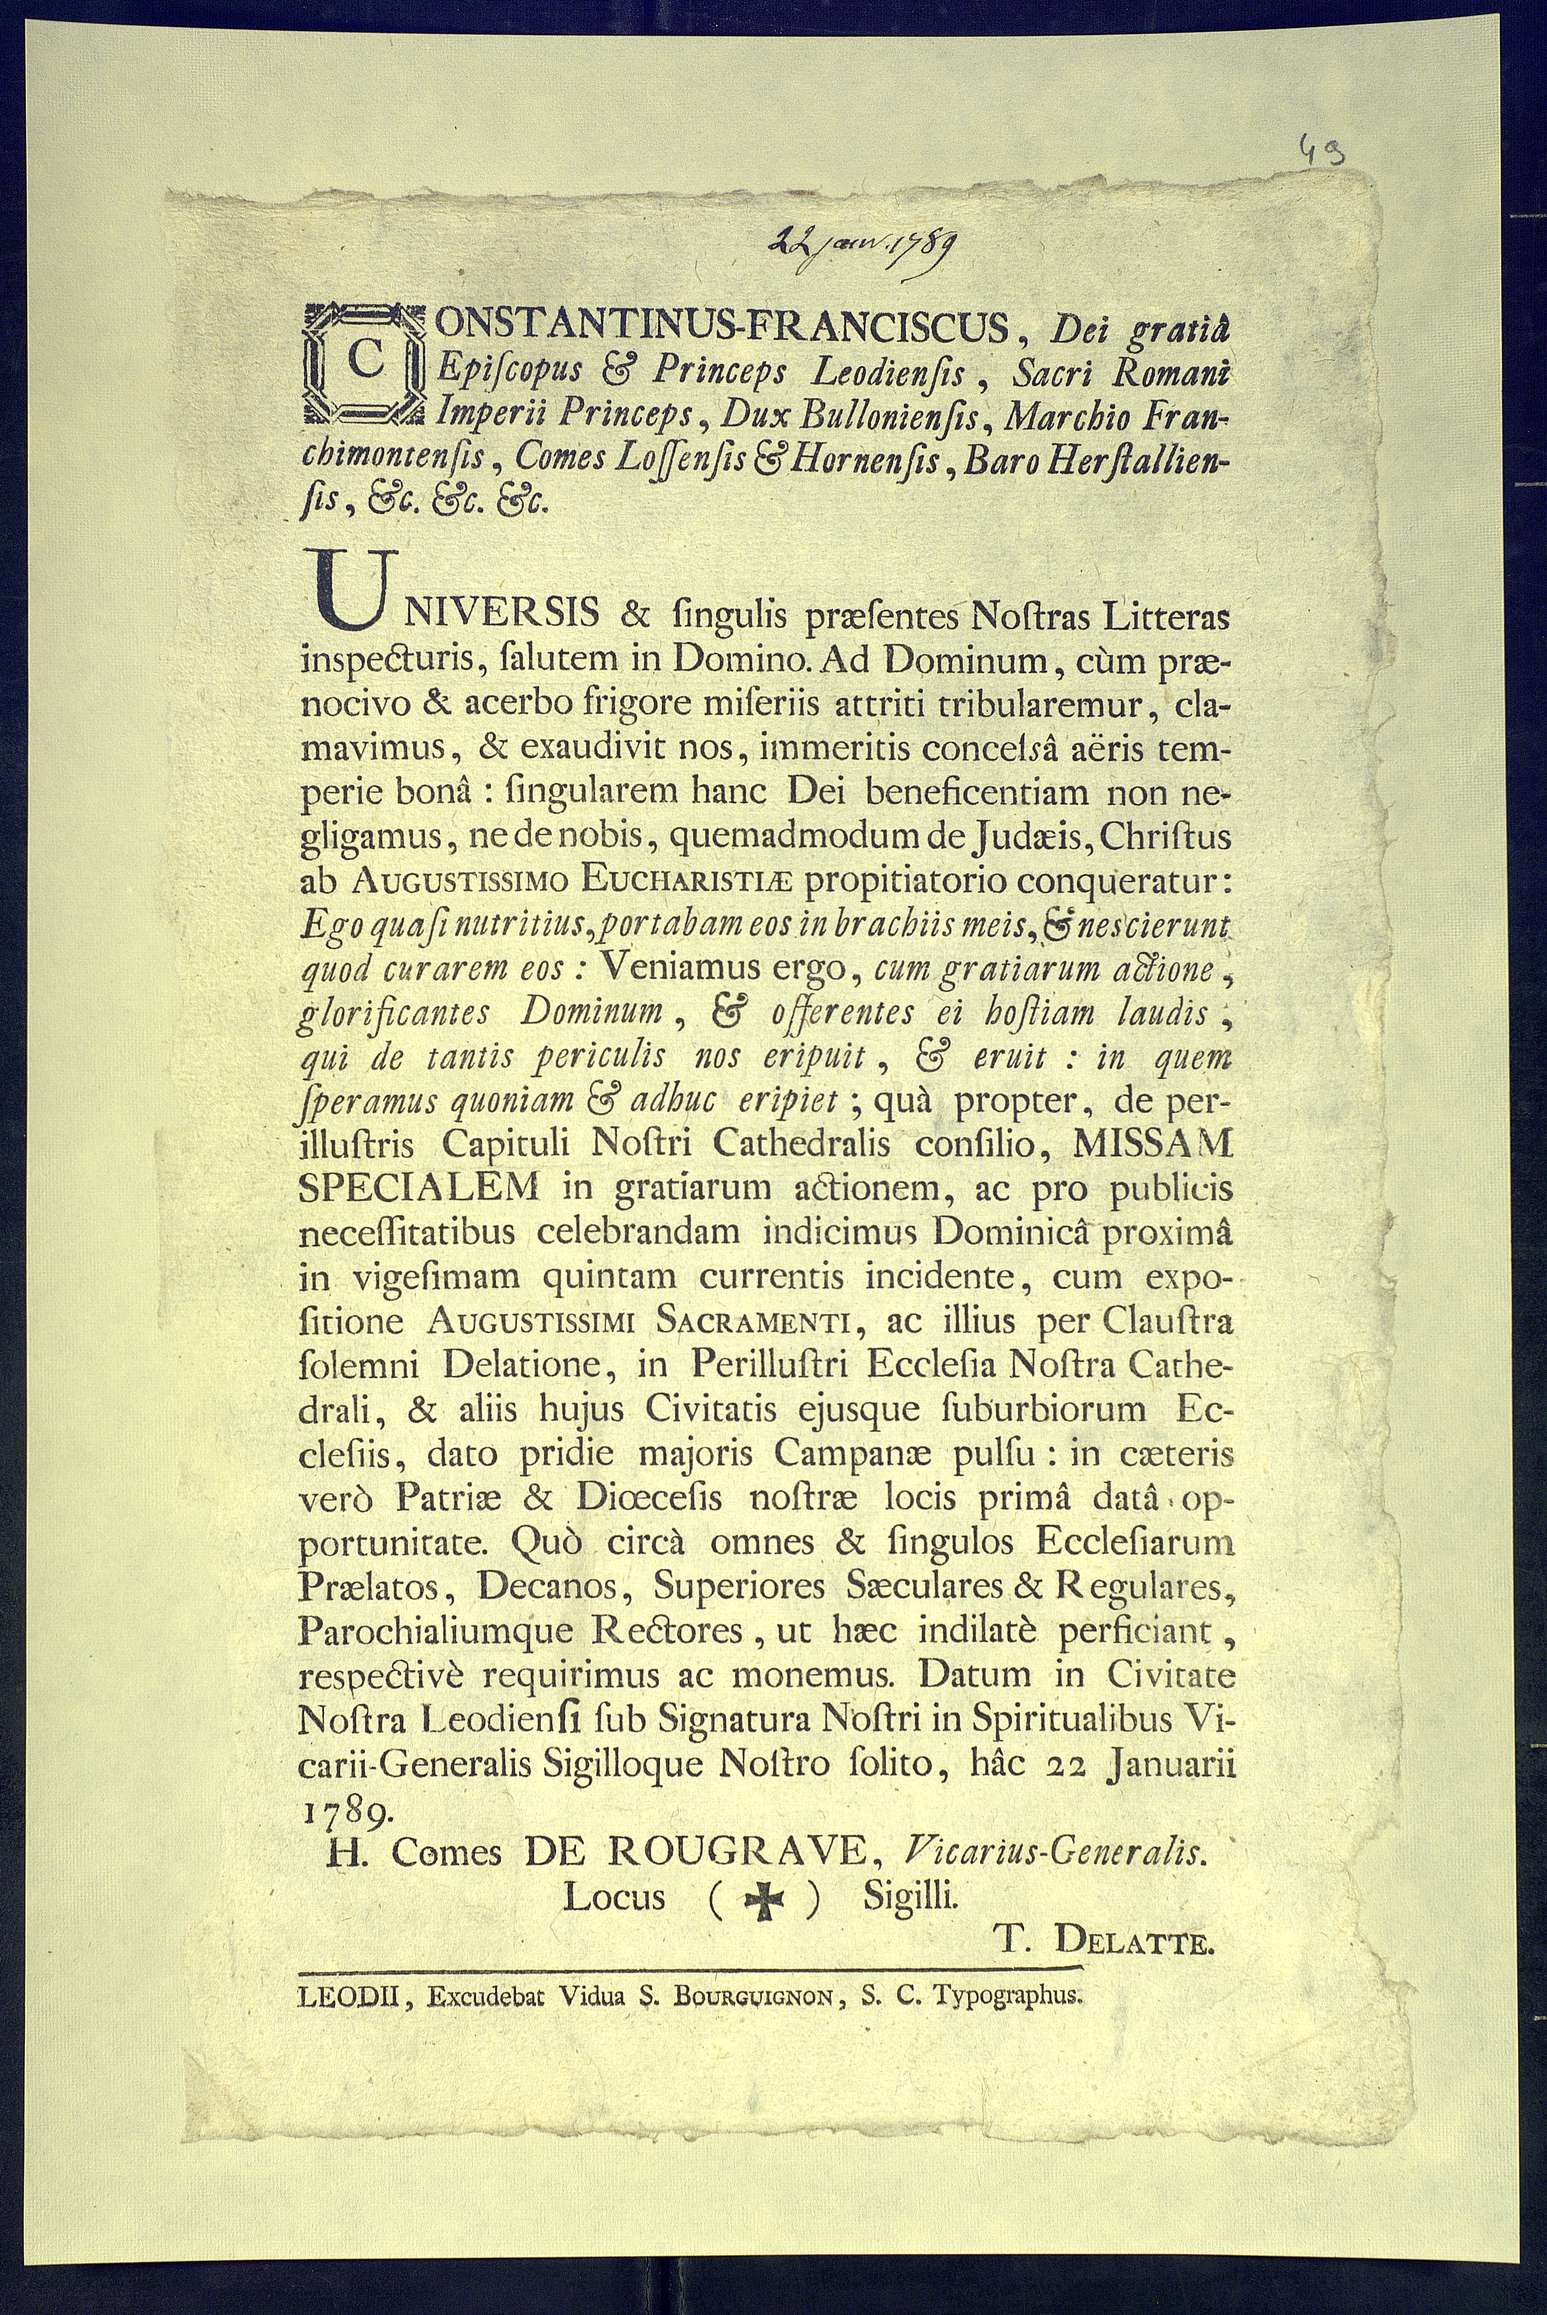 49
22 janv. 1789
CONSTANTINUS-FRANCISCUS, Dei gratiâ
Epiſcopus & Princeps Leodienſis, Sacri Romani
Imperii Princeps, Dux Bullonienſis, Marchio Fran-
chimontenſis, Comes Loſſenſis & Hornenſis, Baro Herſtallien-
ſis, &c. &c. &c.
UNIVERSIS & ſingulis præſentes Noſtras Litteras
inspecturis, ſalutem in Domino. Ad Dominum, cùm præ-
nocivo & acerbo frigore miſeriis attriti tribularemur, cla-
mavimus, & exaudivit nos, immeritis conceſsâ aëris tem-
perie bonâ : ſingularem hanc Dei beneficentiam non ne-
gligamus, ne de nobis, quemadmodum de Judæis, Chriſtus
ab AUGUSTISSIMO EUCHARISTIÆ propitiatorio conqueratur :
Ego quaſi nutritius, portabam eos in brachiis meis, & nescierunt
quod curarem eos : Veniamus ergo, cum gratiarum actione,
glorificantes Dominum, & offerentes ei hoſtiam laudis,
qui de tantis periculis nos eripuit, & eruit : in quem
ſperamus quoniam & adhuc eripiet ; quà propter, de per-
illuſtris Capituli Noſtri Cathedralis conſilio, MISSAM
SPECIALEM in gratiarum actionem, ac pro publicis
neceſſitatibus celebrandam indicimus Dominicâ proximâ
in vigeſimam quintam currentis incidente, cum expo-
ſitione AUGUSTISSIMI SACRAMENTI, ac illius per Clauſtra
ſolemni Delatione, in Perilluſtri Eccleſia Noſtra Cathe-
drali, & aliis hujus Civitatis ejusque ſuburbiorum Ec-
cleſiis, dato pridie majoris Campanæ pulſu : in cæteris
verò Patriæ & Diœceſis noſtræ locis primâ datâ op-
portunitate. Quò circà omnes & ſingulos Eccleſiarum
Prælatos, Decanos, Superiores Sæculares & Regulares,
Parochialiumque Rectores, ut hæc indilatè perficiant,
respectivè requirimus ac monemus. Datum in Civitate
Noſtra Leodienſi ſub Signatura Noſtri in Spiritualibus Vi-
carii-Generalis Sigilloque Noſtro ſolito, hâc 22 Januarii
1789.
H. Comes DE ROUGRAVE, Vicarius-Generalis.
Locus (✠) Sigilli.
T. DELATTE.
LEODII, Excudebat Vidua S. BOURGUIGNON, S. C. Typographus.